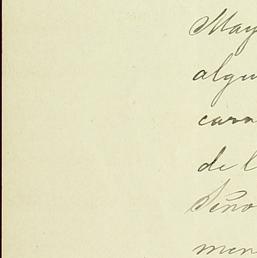 May
algu
cara
de l
Seño
men